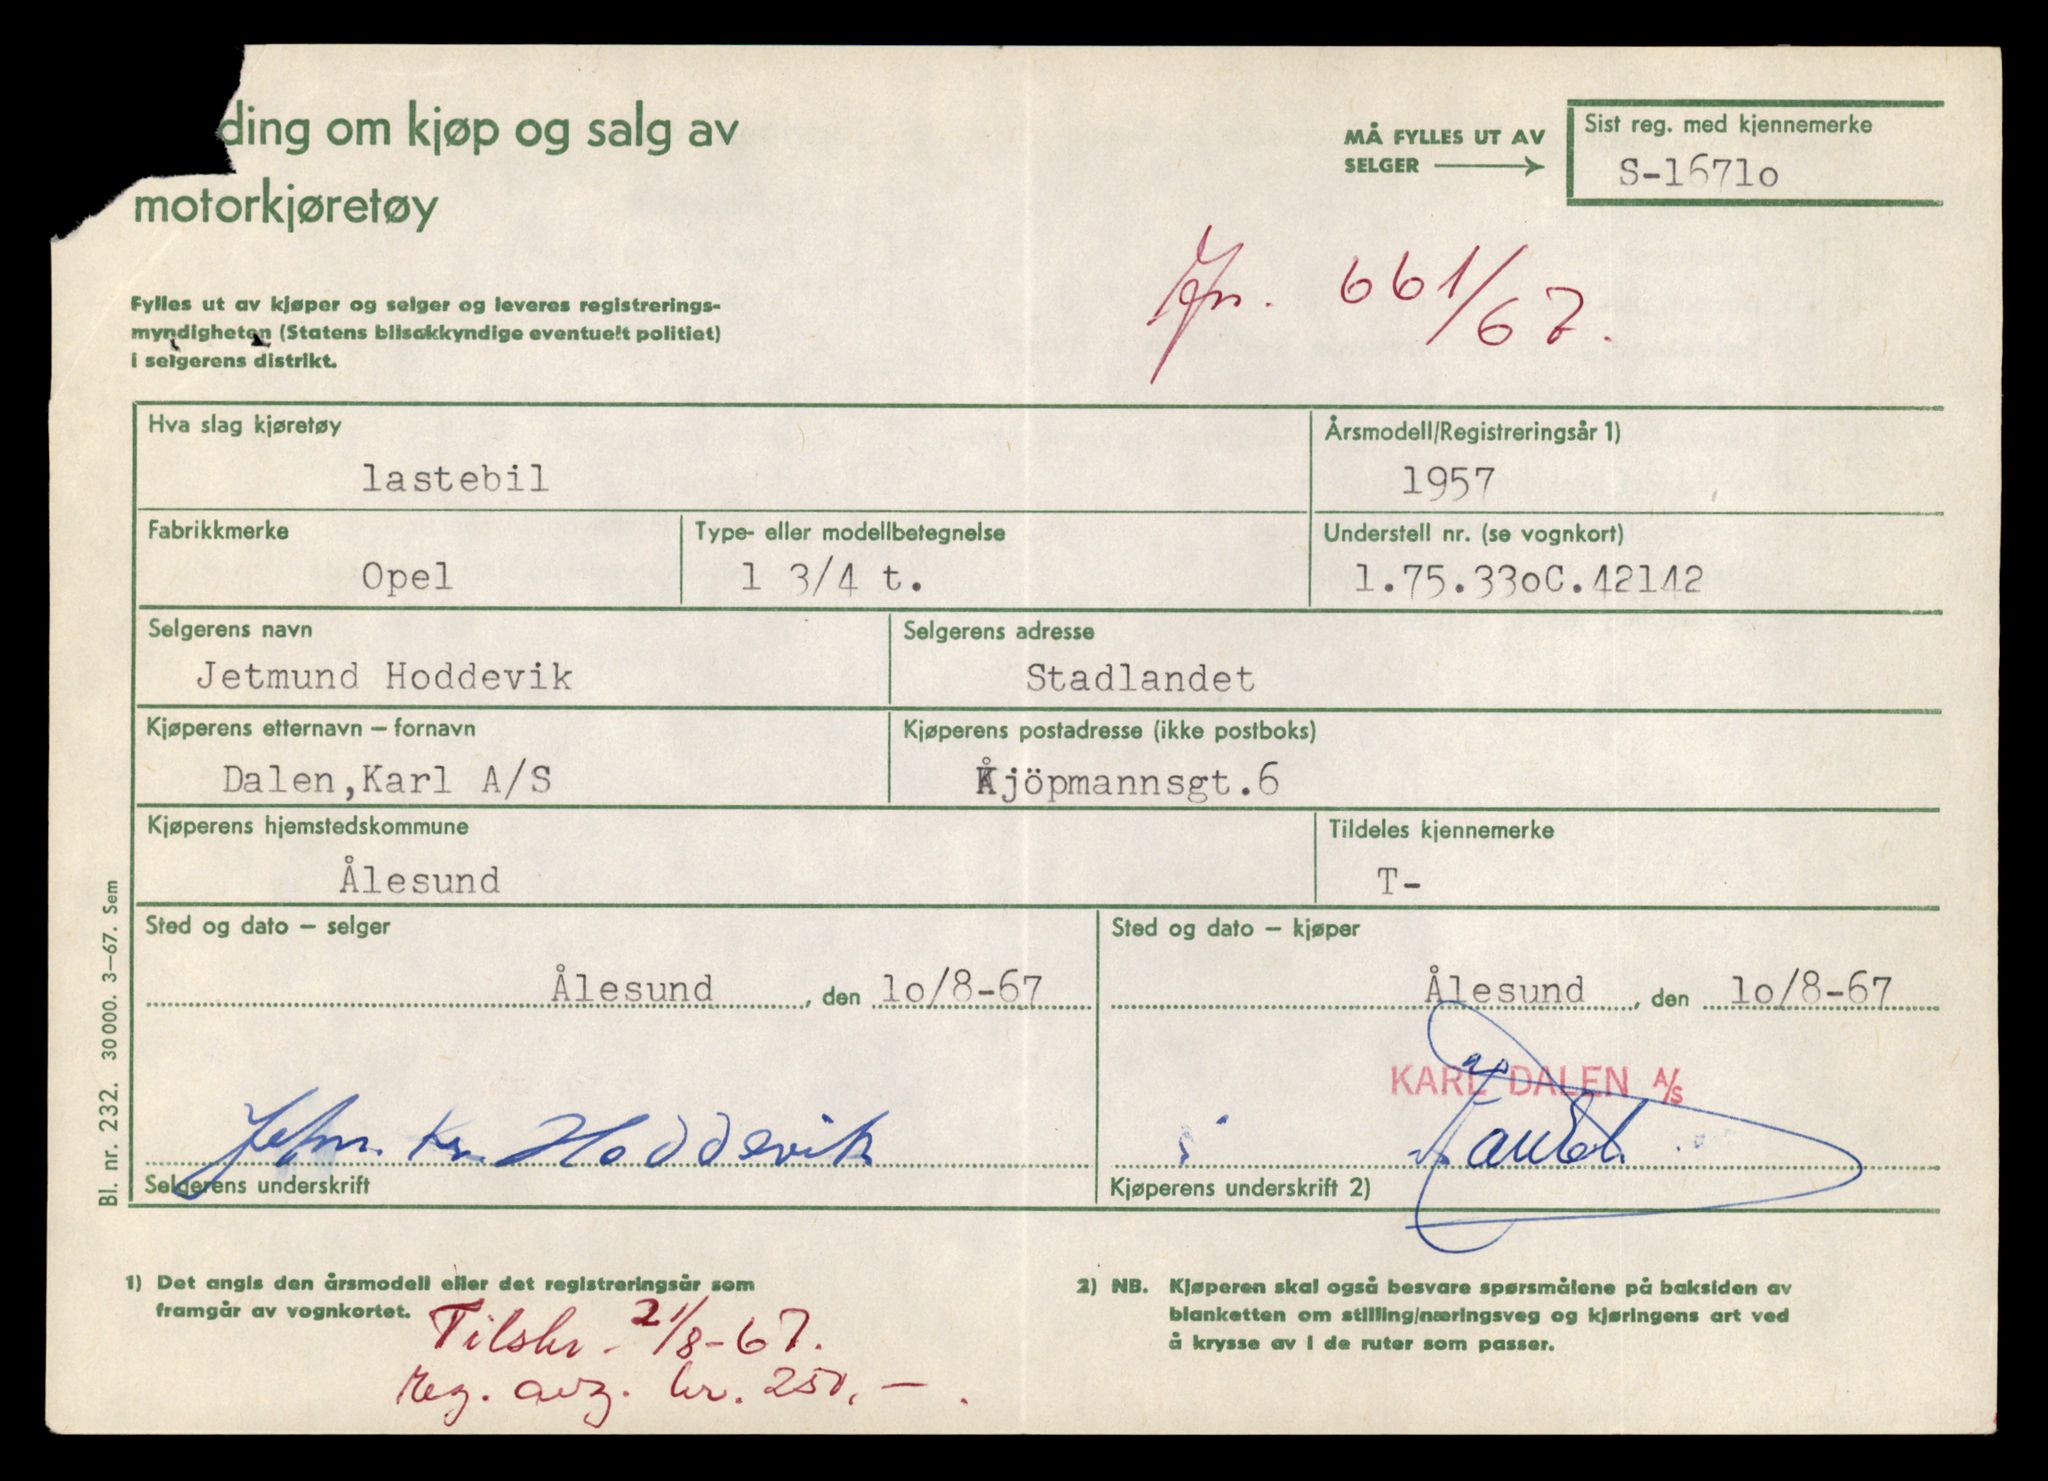 ding om kjøp og salg av
motorkjøretøy
MÅ FYLLES UT AV
SELGER
Sist reg. med kjennemerke
S-1671o
Jfr. 661/67.
Fylles ut av kjøper og selger og leveres registrerings-
myndigheten (Statens bilsakkyndige eventuelt politiet)
i selgerens distrikt.
Hva slag kjøretøy
lastebil
Årsmodell/Registreringsår 1)
1957
Fabrikkmerke
Opel
Type- eller modellbetegnelse
1 3/4 t.
Understell nr. (se vognkort)
1.75.33oC.42142
Selgerens navn
Jetmund Hoddevik
Selgerens adresse
Stadlandet
Kjøperens etternavn – fornavn
Dalen,Karl A/S
Kjøperens postadresse (ikke postboks)
Kjöpmannsgt.6
Kjøperens hjemstedskommune
Ålesund
Tildeles kjennemerke
T-
Sted og dato – selger
Ålesund, den 1o/8-67
Sted og dato – kjøper
Ålesund, den 1o/8-67
KARL DALEN A/S
Hoddevik
Selgerens underskrift
Kjøperens underskrift 2)
Bl. nr. 232. 30000. 3–67. Sem
1) Det angis den årsmodell eller det registreringsår som
framgår av vognkortet.
Tilskr. 21/8-67.
reg. avg. kr. 250,-.
2) NB. Kjøperen skal også besvare spørsmålene på baksiden av
blanketten om stilling/næringsveg og kjøringens art ved
å krysse av i de ruter som passer.